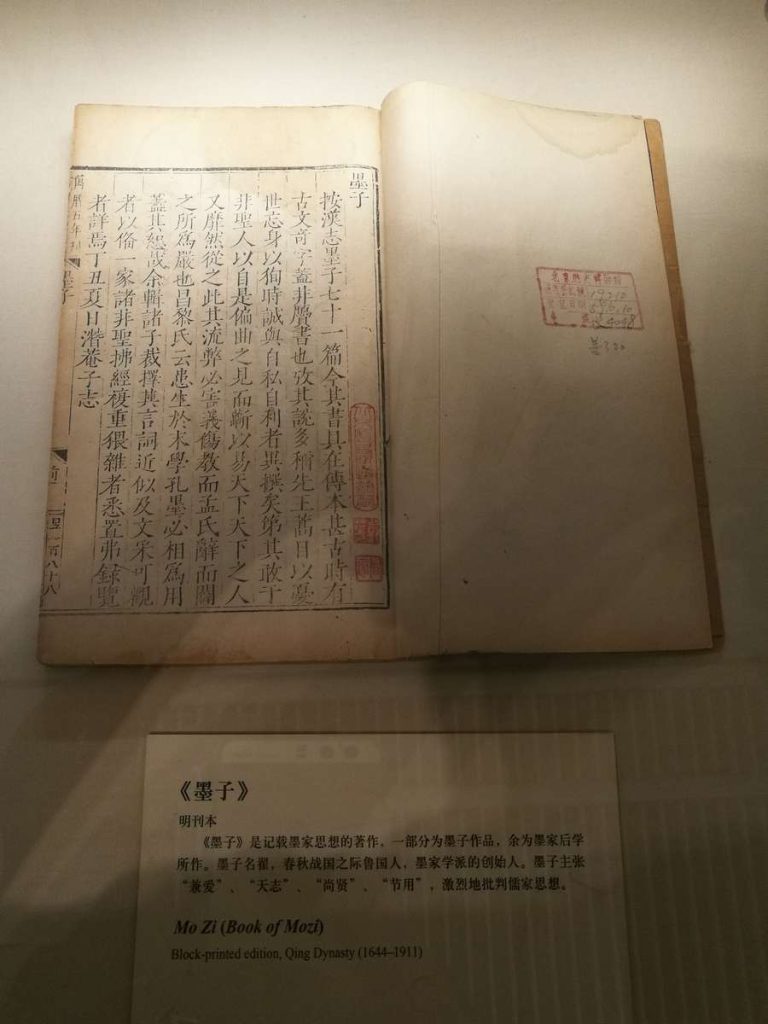 墨子
按漢志墨子七十一篇今其書具在傳本甚古時有
古文奇字蓋非贋書也攷其說多稱先王蒿目以憂
世忘身以徇時誠與自私自利者異撰矣第其敢于
非聖人以自是偏曲之見而蘄以易天下天下之人
又靡然從之此其流弊必害義傷教而孟氏辭而闢
之所爲嚴也昌黎氏云患生於末學孔墨必相爲用
蓋其恕哉余輯諸子裁擇其言詞近似及文采可觀
者以俻一家諸非聖拂經複重猥雜者悉置弗錄覽
者詳焉丁丑夏日潛菴子志
萬曆五年刊
墨子
一百八十八
《墨子》
明刊本
《墨子》是记载墨家思想的著作，一部分为墨子作品，余为墨家后学
所作。墨子名翟，春秋战国之际鲁国人，墨家学派的创始人。墨子主张
“兼爱”、“天志”、“尚贤”、“节用”，激烈地批判儒家思想。
Mo Zi (Book of Mozi)
Block-printed edition, Qing Dynasty (1644–1911)